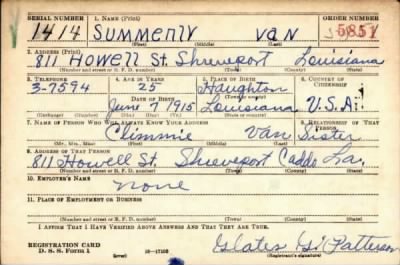 SERIAL NUMBER 1. NAME (Print) ORDER NUMBER
1414 Summerly Van 5851
(First) (Middle) (Last)
2. ADDRESS (Print)
811 Howell St. Shreveport Louisiana
(Number and street or R. F. D. number) (Town) (County) (State)
3. TELEPHONE 4. AGE IN YEARS 5. PLACE OF BIRTH 6. COUNTRY OF CITIZENSHIP
3-7594 25 Haughton
DATE OF BIRTH (Town or county)
June 1915 Louisiana U.S.A.
(Exchange) (Number) (Mo.) (Day) (Yr.) (State or country)
7. NAME OF PERSON WHO WILL ALWAYS KNOW YOUR ADDRESS 8. RELATIONSHIP OF THAT PERSON
Climmie Van Sister
(Mr., Mrs., Miss) (First) (Middle) (Last)
9. ADDRESS OF THAT PERSON
811 Howell St. Shreveport Caddo La.
(Number and street or R. F. D. number) (Town) (County) (State)
10. EMPLOYER'S NAME
none
11. PLACE OF EMPLOYMENT OR BUSINESS
(Number and street or R. F. D. number) (Town) (County) (State)
I AFFIRM THAT I HAVE VERIFIED ABOVE ANSWERS AND THAT THEY ARE TRUE.
REGISTRATION CARD
D. S. S. Form 1 (over) 16—17105 Patterson
(Registrant's signature)